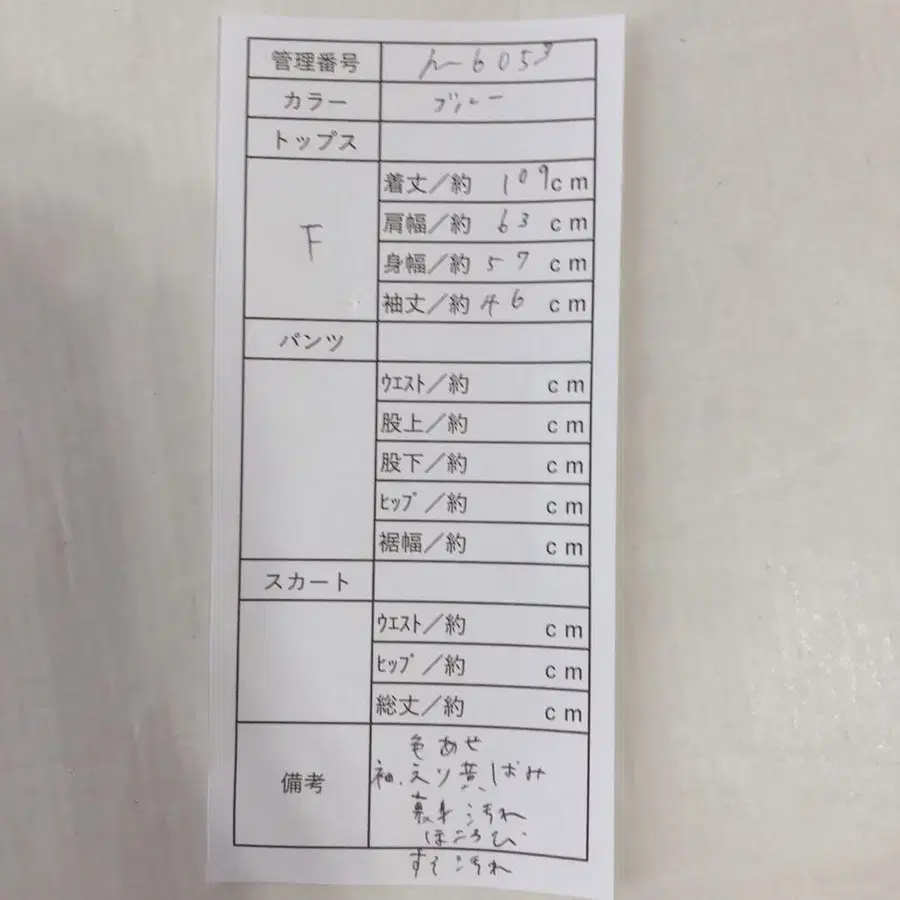 管理番号 h-6053
カラー ブルー
トップス
F
着丈／約 109cm
肩幅／約 63 cm
身幅／約 57 cm
袖丈／約 46 cm
パンツ
ｳｴｽﾄ／約 cm
股上／約 cm
股下／約 cm
ﾋｯﾌﾟ／約 cm
裾幅／約 cm
スカート
ｳｴｽﾄ／約 cm
ﾋｯﾌﾟ／約 cm
総丈／約 cm
備考
色あせ
袖、えり黄ばみ
裏身汚れ
ほころび
すそ汚れ